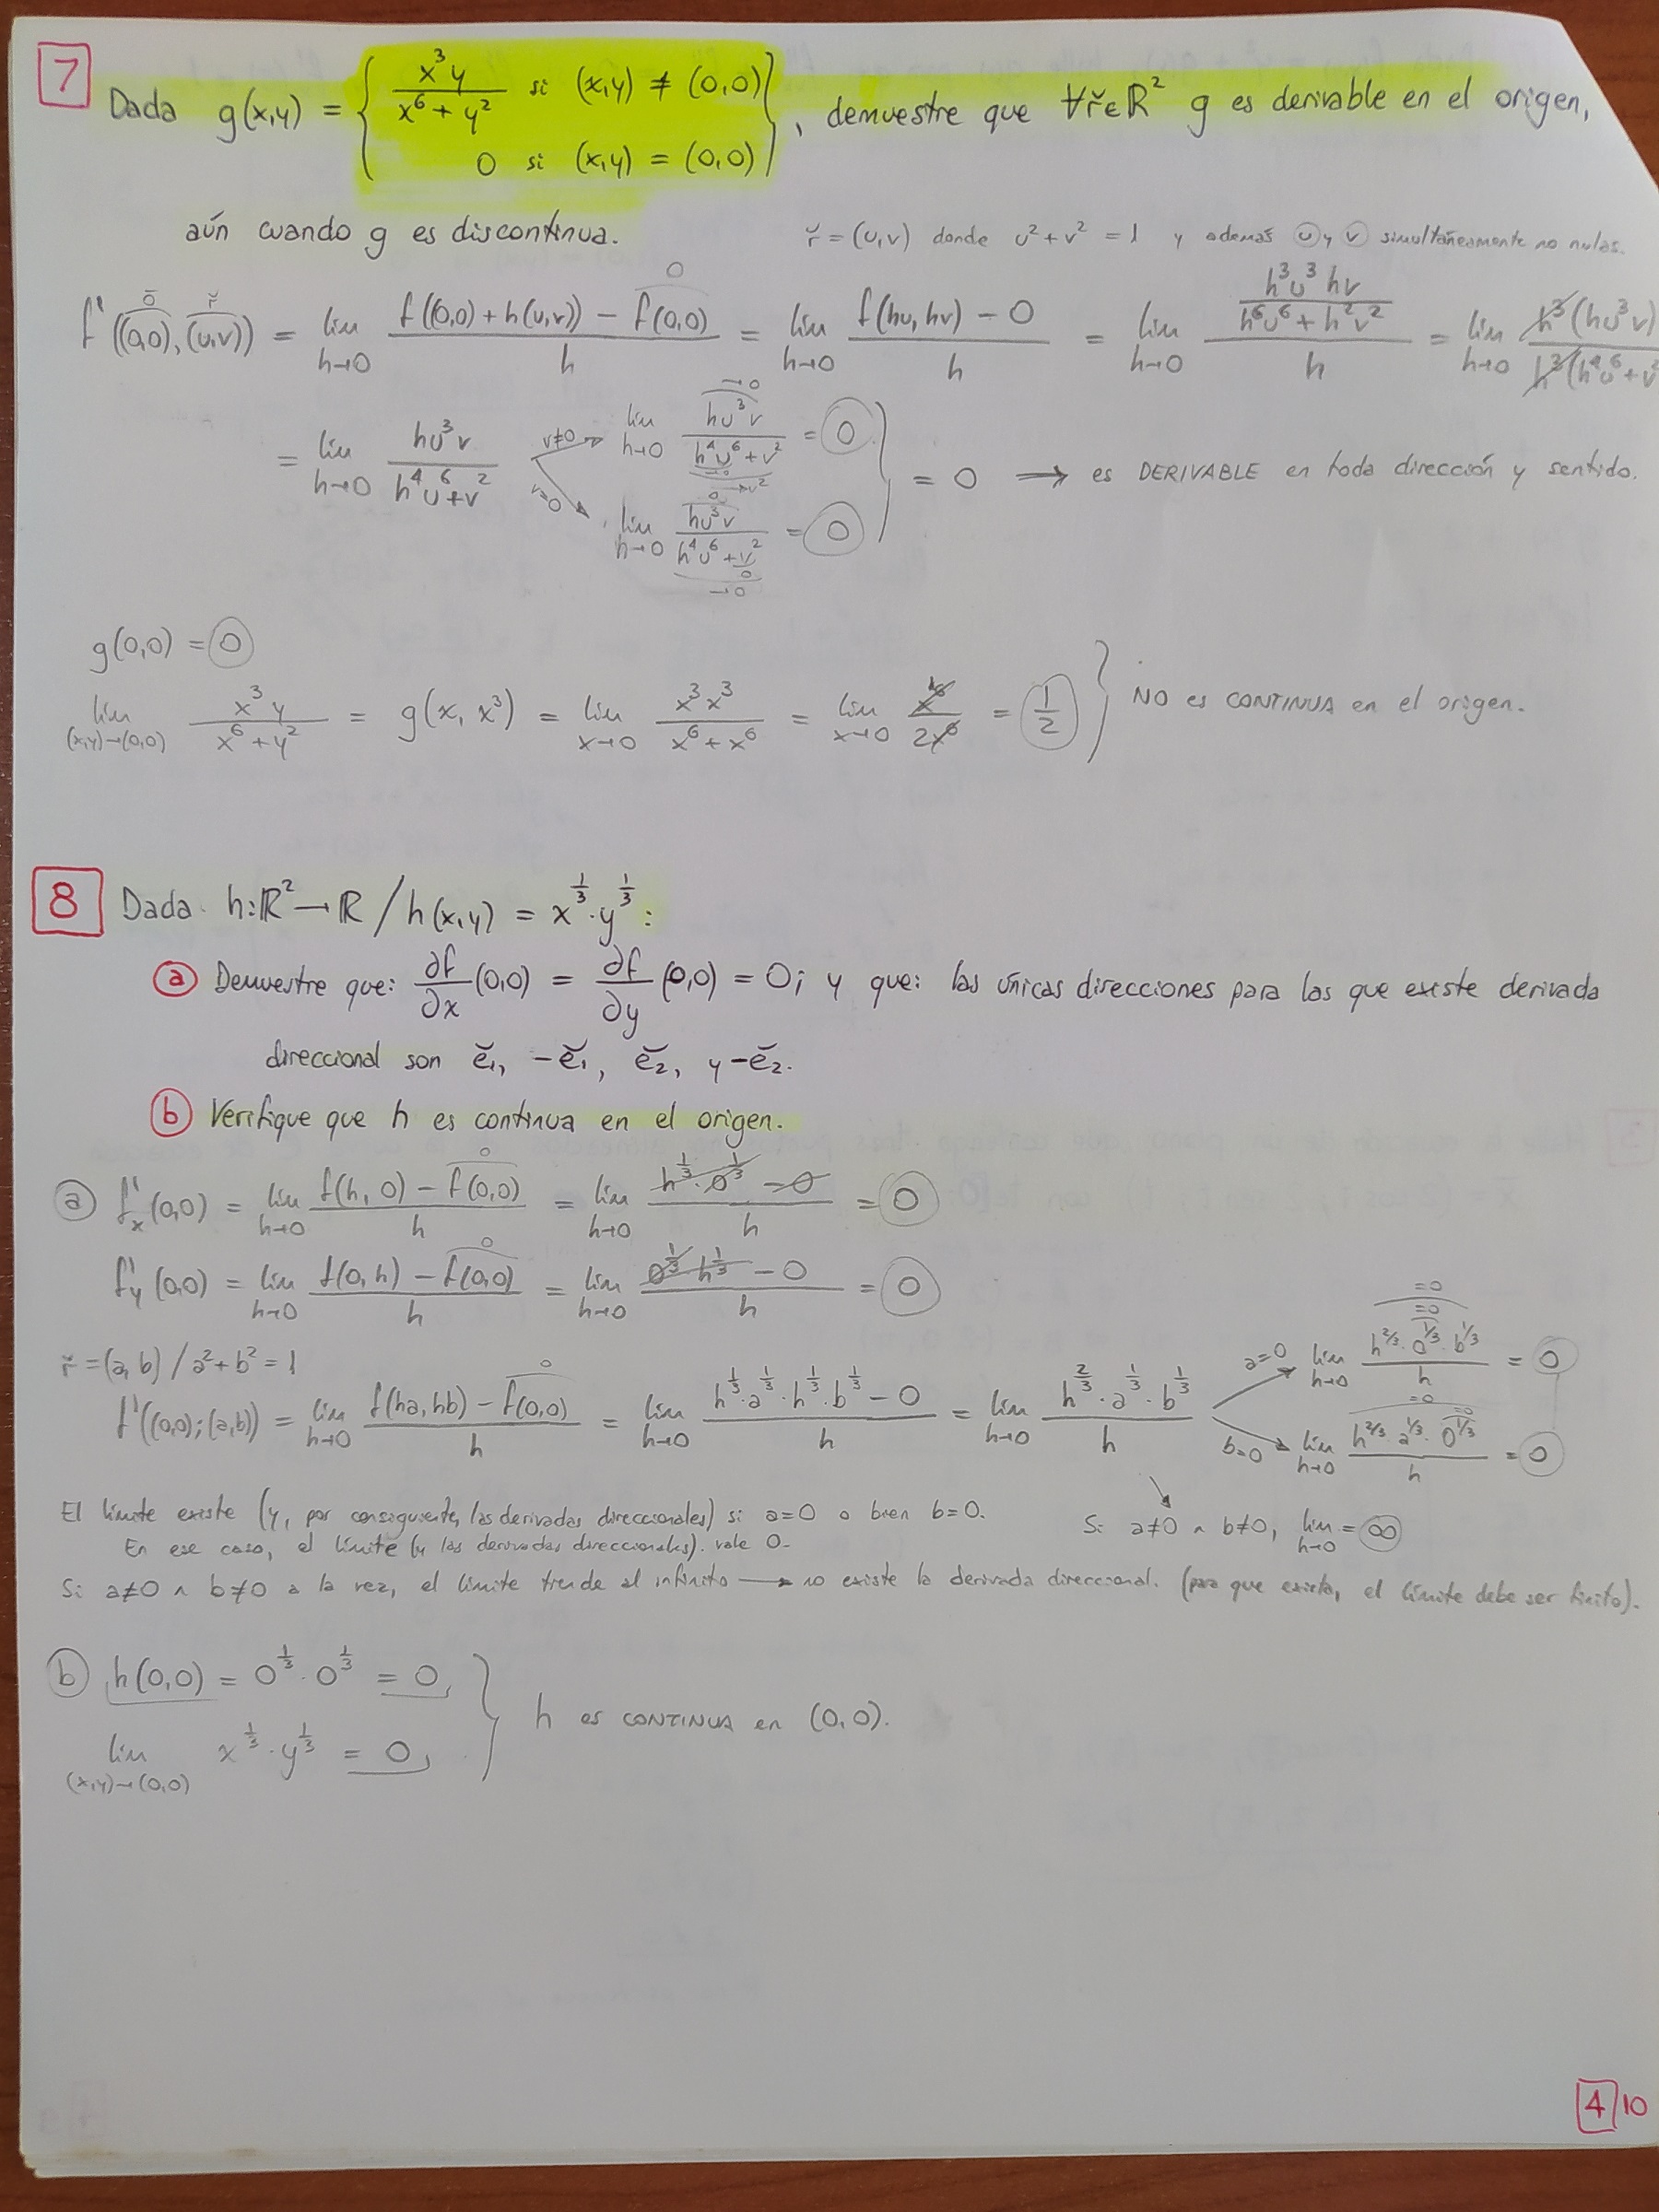 7
Dada g(x,y) = { x³y / (x⁶ + y²) si (x,y) ≠ (0,0)
0 si (x,y) = (0,0) }, demuestre que ∀ř∈ℝ² g es derivable en el origen,
aún cuando g es discontinua.
ř = (u,v) donde u² + v² = 1 y además u y v simultáneamente no nulas.
f'((0,0), (u,v)) = lim h→0 [f((0,0) + h(u,v)) − f(0,0)] / h = lim h→0 [f(hu, hv) − 0] / h = lim h→0 [h³u³ hv / (h⁶u⁶ + h²v²)] / h = lim h→0 h³(hu³v) / h³(h⁴u⁶ + v²
= lim h→0 hu³v / (h⁴u⁶ + v²) v≠0 → lim h→0 hu³v / (h⁴u⁶ + v²) = 0
v=0 → lim h→0 hu³v / (h⁴u⁶ + v²) = 0 } = 0 → es DERIVABLE en toda dirección y sentido.
g(0,0) = 0
lim (x,y)→(0,0) x³y / (x⁶ + y²) = g(x, x³) = lim x→0 x³x³ / (x⁶ + x⁶) = lim x→0 x⁶ / 2x⁶ = 1/2 } NO es CONTINUA en el origen.
8 Dada h: ℝ² → ℝ / h(x,y) = x^(1/3) · y^(1/3) :
a Demuestre que: ∂f/∂x (0,0) = ∂f/∂y (0,0) = 0; y que: las únicas direcciones para las que existe derivada
direccional son ě₁, −ě₁, ě₂, y −ě₂.
b Verifique que h es continua en el origen.
a f'x (0,0) = lim h→0 [f(h, 0) − f(0,0)] / h = lim h→0 [h^(1/3) · 0^(1/3) − 0] / h = 0
f'y (0,0) = lim h→0 [f(0, h) − f(0,0)] / h = lim h→0 [0^(1/3) · h^(1/3) − 0] / h = 0
ř = (a, b) / a² + b² = 1
f'((0,0); (a,b)) = lim h→0 [f(ha, hb) − f(0,0)] / h = lim h→0 [h^(1/3) · a^(1/3) · h^(1/3) · b^(1/3) − 0] / h = lim h→0 [h^(2/3) · a^(1/3) · b^(1/3)] / h a=0 → lim h→0 [h^(2/3) · 0^(1/3) · b^(1/3)] / h = 0
b=0 → lim h→0 [h^(2/3) · a^(1/3) · 0^(1/3)] / h = 0
El límite existe (y, por consiguiente, las derivadas direccionales) si a=0 o bien b=0.
Si a≠0 ∧ b≠0, lim h→0 = ∞
En ese caso, el límite (y las derivadas direccionales). vale 0.
Si a≠0 ∧ b≠0 a la vez, el límite tiende al infinito → no existe la derivada direccional. (para que exista, el límite debe ser finito).
b h(0,0) = 0^(1/3) · 0^(1/3) = 0,
lim (x,y)→(0,0) x^(1/3) · y^(1/3) = 0, } h es CONTINUA en (0,0).
4/10